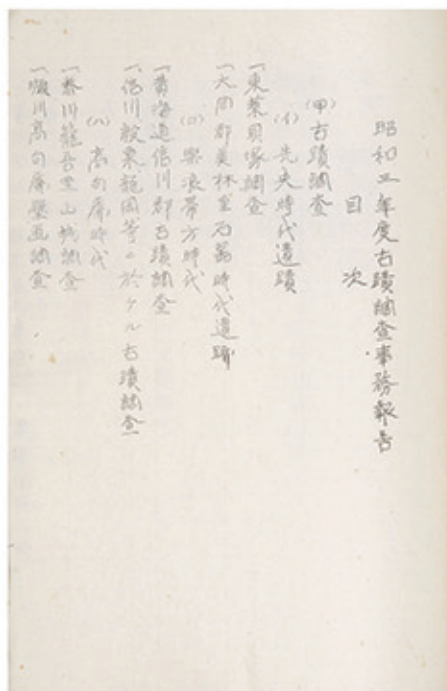 昭和五年度古蹟調査事務報告
目次
(甲)古蹟調査
(イ)先史時代遺蹟
一東萊貝塚調査
一大同郡美林里石器時代遺蹟
(ロ)樂浪帶方時代
一黄海道信川郡古蹟調査
一信川殷栗龍岡等ニ於ケル古蹟調査
(ハ)高句麗時代
一泰川籠吾里山城調査
一順川高句麗壁画調査